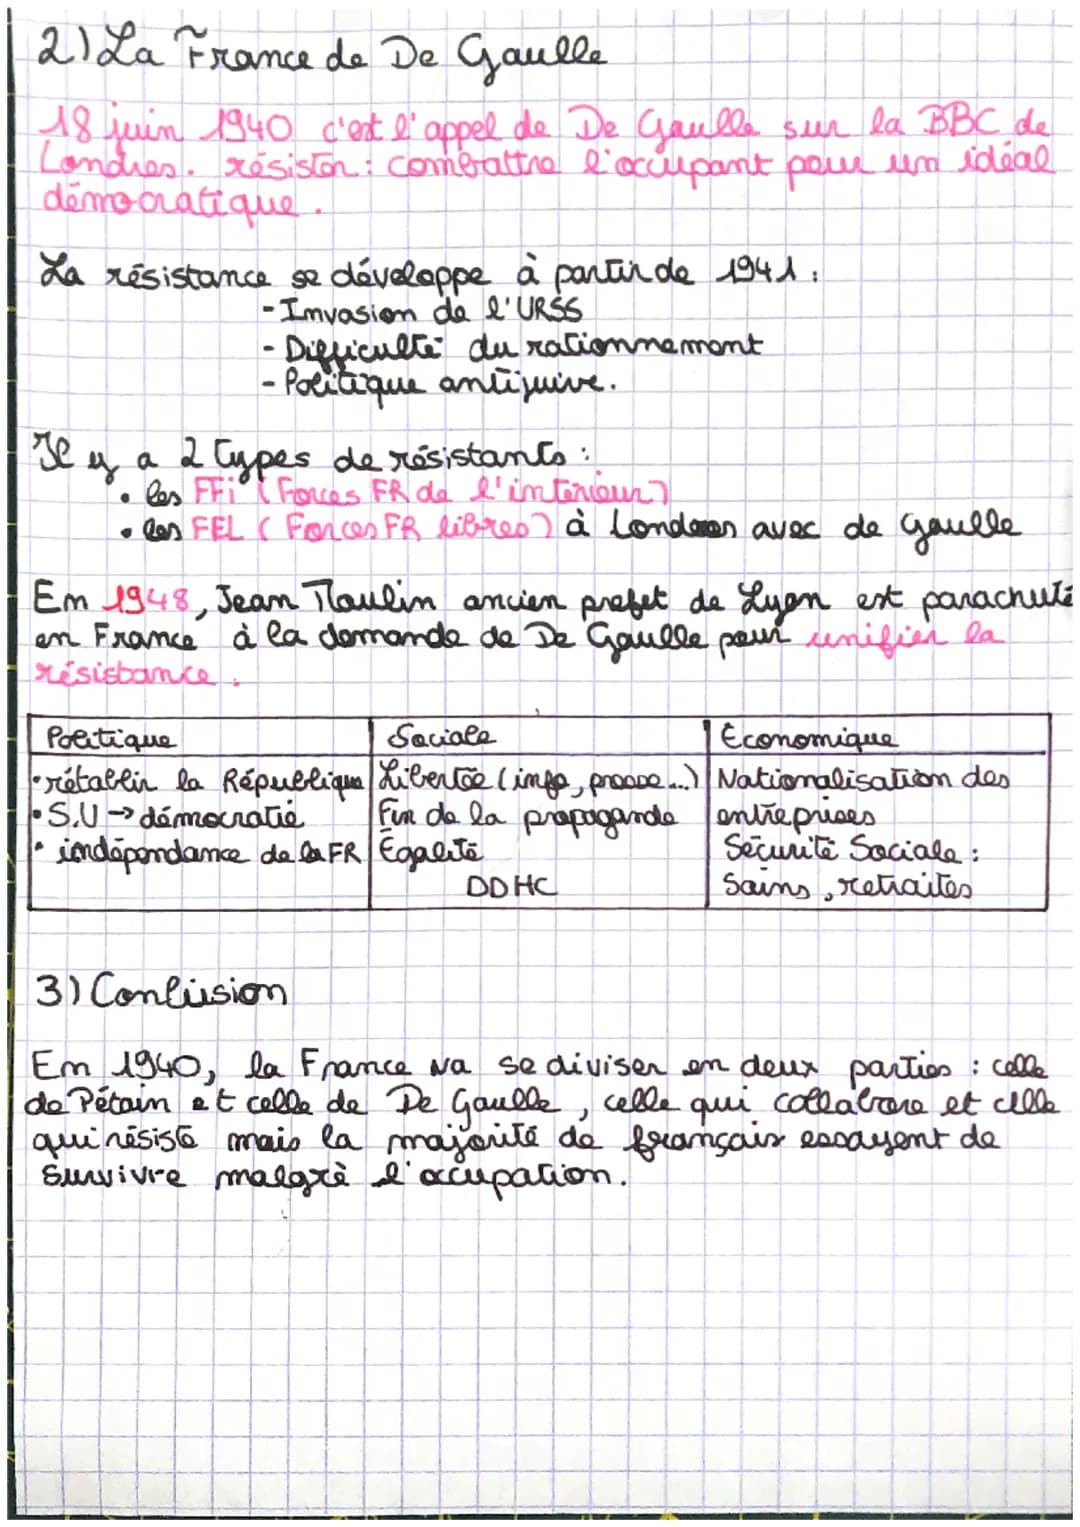 2) La France de De Gaulle
18 juin 1940 c'est l'appel de De Gaulle sur la BBC de
Londres. résister : combattre l'occupant pour un idéal
démocratique.
La résistance se développe à partir de 1941 :
- Invasion de l'URSS
- Difficulté du rationnement
- Politique antijuive.
Il y a 2 types de résistants :
• les FFi (Forces FR de l'intérieur)
• les FEL (Forces FR libres) à Londres avec de Gaulle
En 1948, Jean Moulin ancien prefet de Lyon est parachuté
en France à la demande de De Gaulle pour unifier la
résistance.
Politique
Sociale
Economique
• rétablir la République
Libertée (info, presse...)
Nationalisation des
• S.U → démocratie
Fin de la propagande
entreprises
• indépendance de la FR
Egalité
Sécurité Sociale :
DDHC
Sains, retraites
3) Conlusion
En 1940, la France va se diviser en deux parties : celle
de Pétain et celle de De Gaulle, celle qui collabore et celle
qui résiste mais la majorité de français essayent de
Survivre malgrè l'occupation.